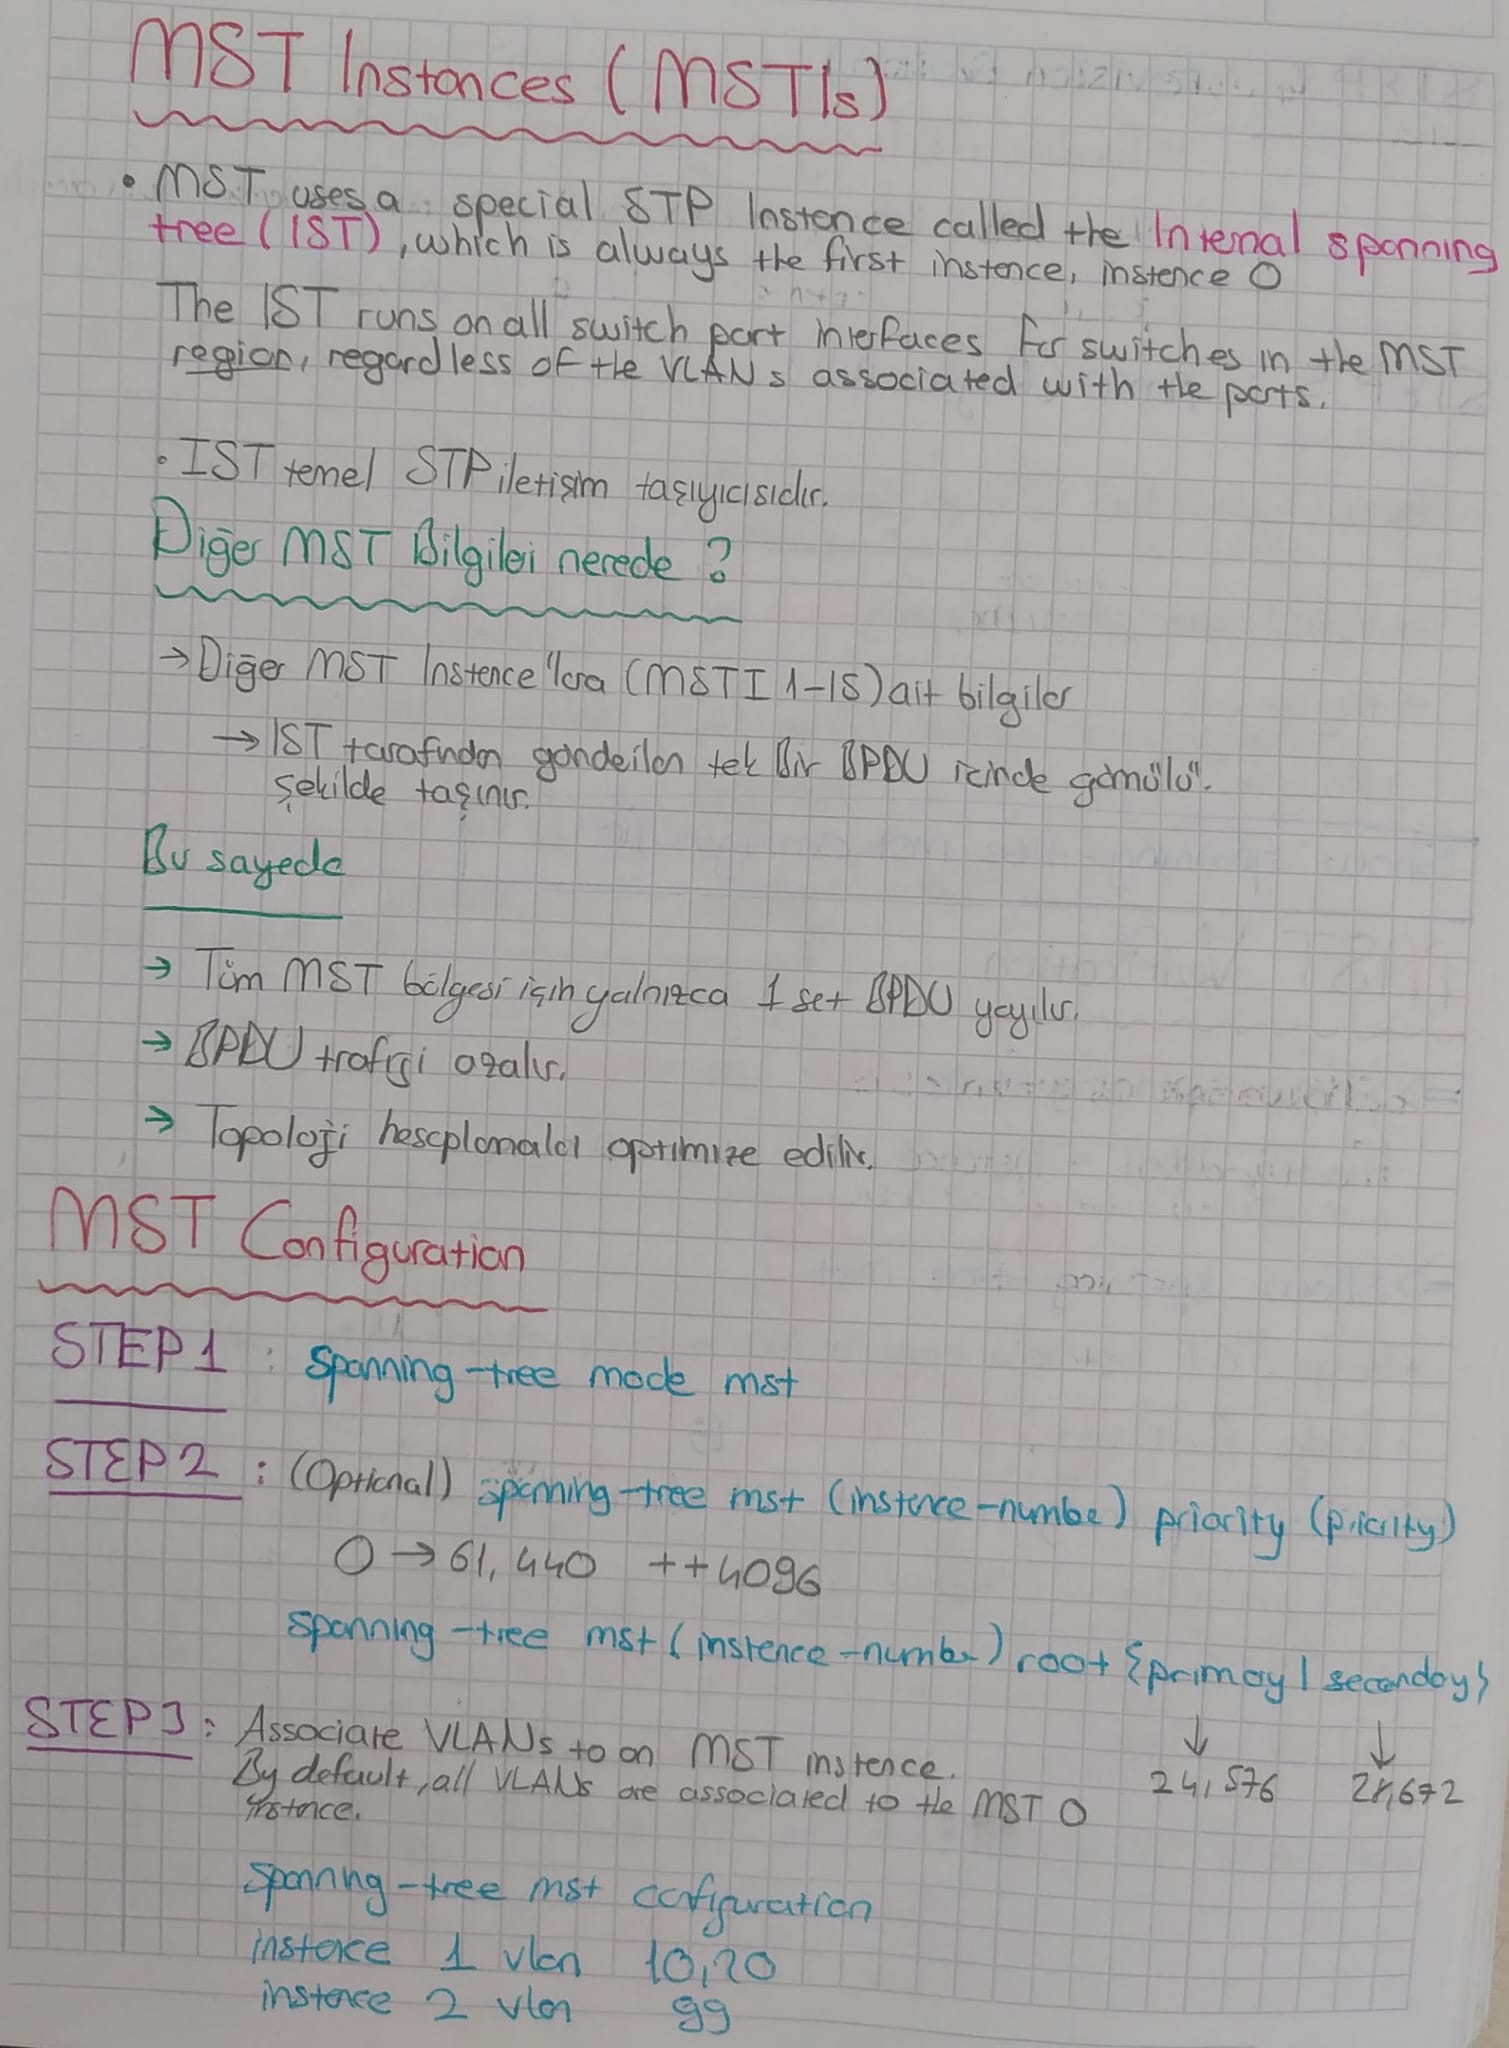 MST Instances (MSTIs)
• MST uses a special STP Instence called the Internal spanning
tree (IST), which is always the first instence, instence 0
The IST runs on all switch port interfaces for switches in the MST
region, regardless of the VLANs associated with the ports.
• IST temel STP iletişim taşıyıcısıdır.
Diğer MST Bilgileri nerede ?
→ Diğer MST Instence'lara (MSTI 1-15) ait bilgiler
→ IST tarafından gönderilen tek bir BPDU içinde gömülü
şekilde taşınır.
Bu sayede
→ Tüm MST bölgesi için yalnızca 1 set BPDU yayılır.
→ BPDU trafiği azalır.
→ Topoloji hesaplamaları optimize edilir.
MST Configuration
STEP1 : spanning-tree mode mst
STEP2 : (Optional) spanning-tree mst (instence-number) priority (priority)
0 → 61,440 ++4096
spanning-tree mst (instence-number) root {primary | secondary}
↓ ↓
24,576 28,672
STEP3 : Associate VLANs to an MST instence.
By default, all VLANs are associated to the MST 0
instance.
spanning-tree mst configuration
instence 1 vlan 10,20
instence 2 vlan 99